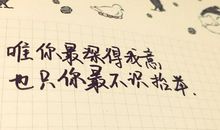 唯你最深得我意
也只你最不识抬举.